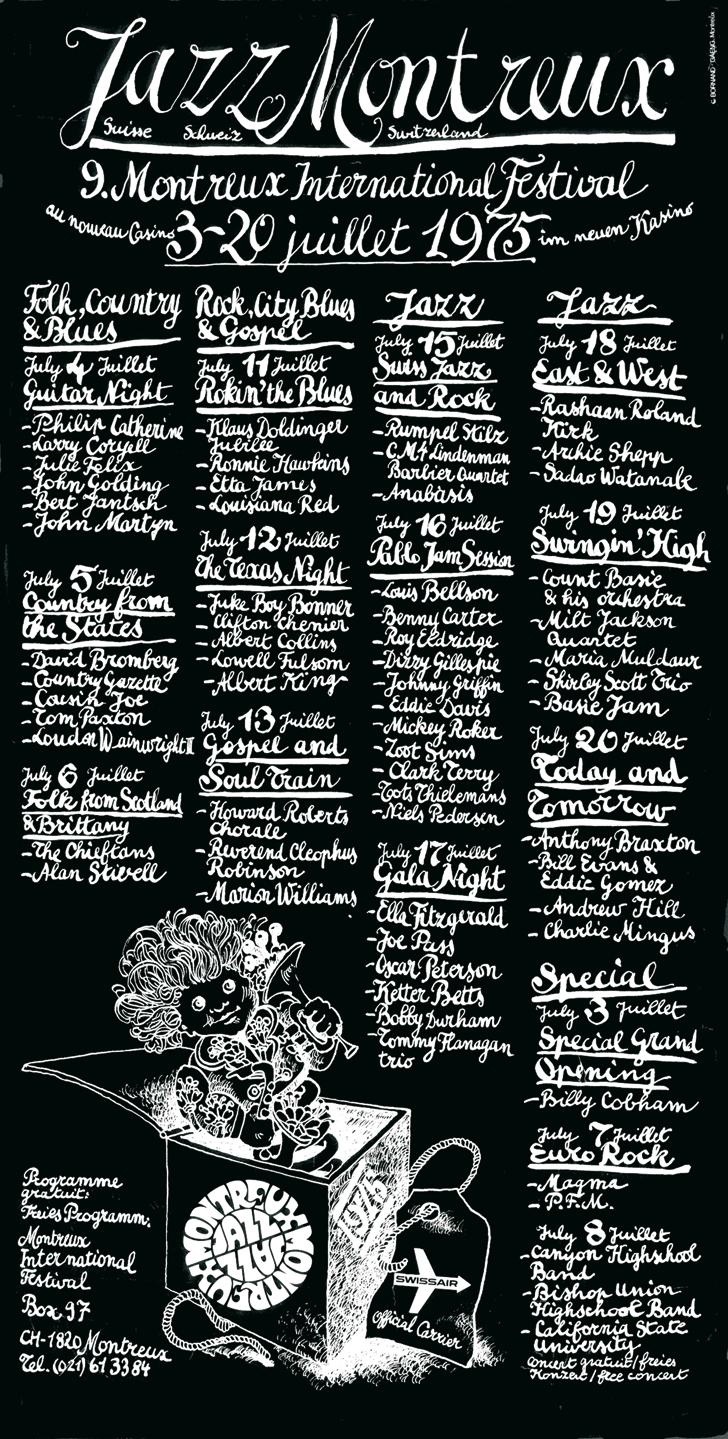 © BORNAND-GAENG, Montreux
Jazz Montreux
Suisse Schweiz Switzerland
9. Montreux International Festival
au nouveau Casino 3-20 juillet 1975 im neuen Kasino
Folk, Country
& Blues
July 4 Juillet
Guitar Night
-Philip Catherine
-Larry Coryell
-Julie Felix
-John Golding
-Bert Jantsch
-John Martyn
July 5 Juillet
Country from
the States
-David Bromberg
-Country Gazette
-Cousin Joe
-Tom Paxton
-Loudon Wainwright III
July 6 Juillet
Folk from Scotland
& Brittany
-The Chieftans
-Alan Stivell
Rock, City Blues
& Gospel
July 11 Juillet
Rokin' the Blues
-Klaus Doldinger
Jubilee
-Ronnie Hawkins
-Etta James
-Louisiana Red
July 12 Juillet
The Texas Night
-Juke Boy Bonner
-Clifton Chenier
-Albert Collins
-Lowell Fulsom
-Albert King
July 13 Juillet
Gospel and
Soul Train
-Howard Roberts
Chorale
-Reverend Cleophus
Robinson
-Marion Williams
Jazz
July 15 Juillet
Suiss Jazz
and Rock
-Rumpel Stilz
-C.M4 Lindenman
Barbier Quartet
-Anabasis
July 16 Juillet
Pablo Jam Session
-Louis Bellson
-Benny Carter
-Roy Eldridge
-Dizzy Gillespie
-Johnny Griffin
-Eddie Davis
-Mickey Roker
-Zoot Sims
-Clark Terry
-Toots Thielemans
-Niels Pedersen
July 17 Juillet
Gala Night
-Ella Fitzgerald
-Joe Pass
-Oscar Peterson
-Ketter Betts
-Bobby Durham
-Tommy Flanagan
trio
Jazz
July 18 Juillet
East & West
-Rashaan Roland
Kirk
-Archie Shepp
-Sadao Watanabe
July 19 Juillet
Swingin' High
-Count Basie
& his orchestra
-Milt Jackson
Quartet
-Maria Muldaur
-Shirley Scott Trio
-Basie Jam
July 20 Juillet
Today and
Tomorrow
-Anthony Braxton
-Bill Evans &
Eddie Gomez
-Andrew Hill
-Charlie Mingus
Special
July 3 Juillet
Special Grand
Opening
-Billy Cobham
July 7 Juillet
Euro Rock
-Magma
-P.F.M.
July 8 Juillet
-Canyon Highschool
Band
-Bishop Union
Highschool Band
-California State
University
Concert gratuit/freies
Konzert/free concert
Programme
gratuit:
Freies Programm:
Montreux
International
Festival
Box 97
CH-1820 Montreux
Tel. (021) 61 33 84
MONTREUX MONTREUX
JAZZ JAZZ
1975
SWISSAIR
Official Carrier